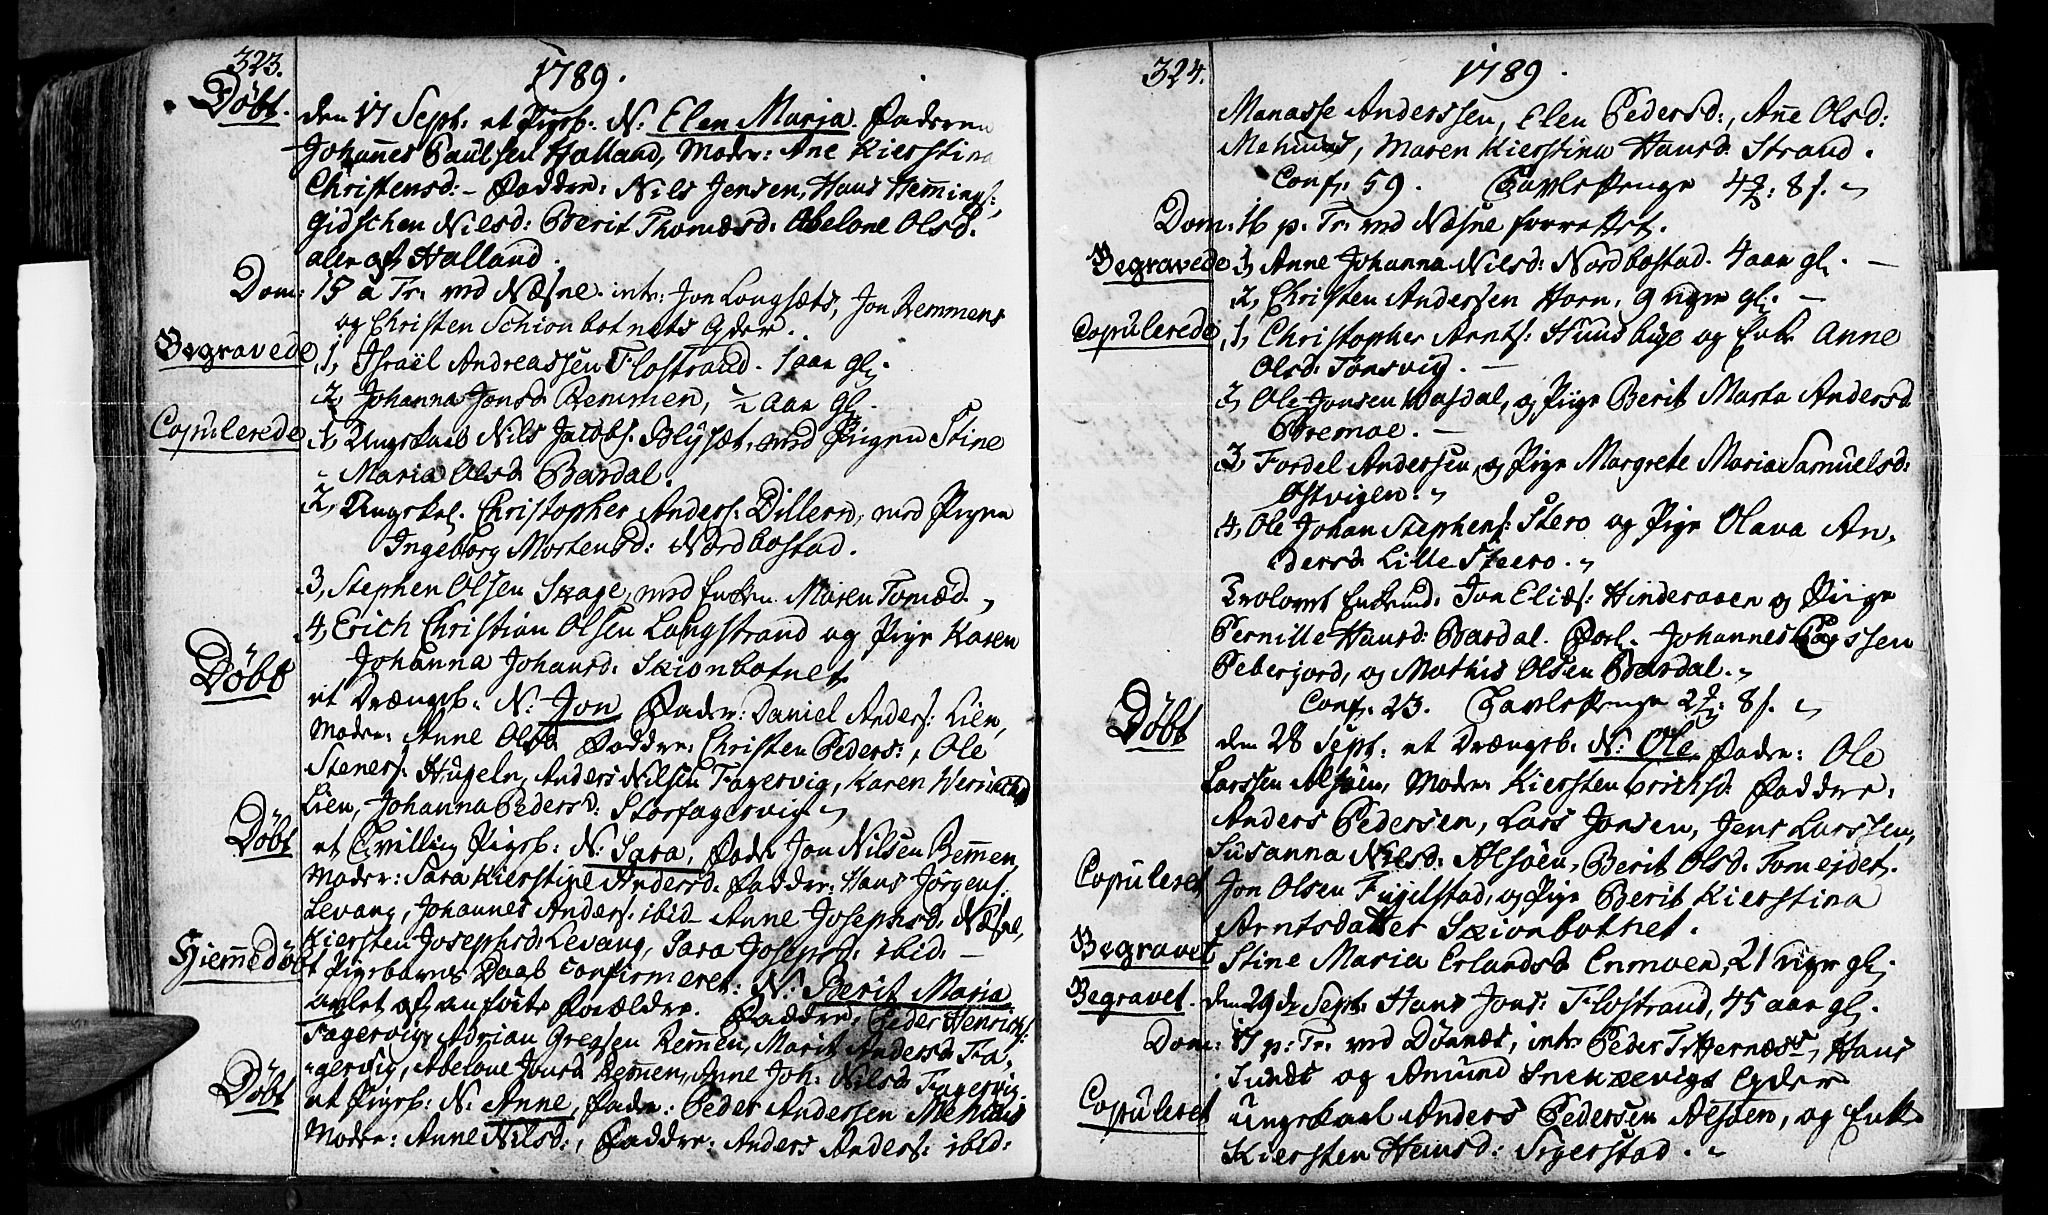 323.
1789.
Døbt.
den 17 Sept. et Pigeb: N: Elen Maria. Faderen
Johannes Paulsen Halland, Moder: Ane Kierstina
Christensd: - Faddre: Nils Jensen, Hans Hemings:,
Gidschen Nilsd: Berit Thomæsd: Abelone Olsd.
alle af Halland.
Dom: 15 a Tr: ved Næsne. intr: Jon Langsæts, Jon Remmens
og Christen Schionbotnets Eder.
Begravede, 1, Israël Andreassen Flostrand. 1 aar gl:
2, Johanna Jonsd: Remmen, ½ aar gl.
Copulerede, 1, Ungekarl Nils Jacobs: Blysæt, med Pigen Stine
Maria Olsd Bardal.
2, Ungekl. Christopher Anders: Dillern, med Pigen
Ingeborg Mortensd: Nordbostad.
3, Stephen Olsen Skage, med Enken Maren Tomæd.
4, Erich Christian Olsen Langstrand og Pige Karen
Johanna Johansd: Skionbotnet
Døbt
et Drængeb. N: Jon Fader: Daniel Anders: Lien,
Moder: Anne Olsd, Faddre: Christen Peders:, Ole
Steners: Hugeln, Anders Nilsen Fagervig, Karen
Lien, Johanna Pedersd: Storfagervig
Døbt
et Tvilling Pigeb: N: Sara, Fader Jon Nilsen Remmen,
Moder: Sara Kierstine Andersd. Faddre: Hans Jørgens:
Levang, Johannes Anders: ibid Anne Josephsd: Næsne,
Kiersten Josephsd: Levang, Sara Josephsd: ibid: -
Hiemmedøbt
Pigebarns Daab confirmeret: N: Berit Maria
avlet af Forældre. Faddre: Peder Henrichs:
Fagervig, Adrian Gregsen Remmen, Marit Andersd Fa-
gervig, Abelone Jonsd Remmen, Anne Joh: Nilsd Fagervig.
Døbt
et Pigeb: N: Anne, Fader: Peder Andersen Mehuus
Moder: Anne Nilsd:, Faddre: Anders Anders: ibid:
324.
1789.
Manasse Anderssen, Elen Pedersd:, Ane Olsd:
Mehuus, Maren Kierstina Hansd: Strand.
Conf: 59. Tavlepenge 4 8 s.
Dom: 16 p: Tr: ved Næsne forrettet.
Begravede 1, Anne Johanna Nilsd: Nordbostad. 4 aar gl. -
2, Christen Andersen Horn, 9 uger gl. -
Copulerede, 1, Christopher Arnts: Hundbige og Enke Anne
Olsd: Tonsvig. -
2, Ole Jonsen Dasdal, og Pige Berit Marta Andersd
Bremoe. -
3, Fordel Andersen, og Pige Margrete Maria Samuelsd:
Østvigen.
4, Ole Johan Stephens: Stero og Pige Olava An-
dersd Lille Steero.
Trolovet Enkemd: Jon Elies: Hinderaaen og Pige
Pernille Hansd: Bardal. Forl. Johannes Larssen
Peberjord, og Mathis Olsen Bardal.
Conf. 23. Tavlepenge 2 8 s.
Døbt
den 28 Sept: et Drængeb: N: Ole Fader: Ole
Larssen Alsøen, Moder Kiersten Erichsd. Faddre:
Anders Pedersen, Lars Jonsen, Jens Larssen,
Susanna Nilsd: Alsøen, Berit Olsd: Tomejdet.
Copuleret
Jon Olsen Fugelstad, og Pige Berit Kierstina
Arntsdatter Skionbotnet.
Begravet Stine Maria Erlandsd Enmoen, 21 uger gl.
Begravet. den 29de Sept: Hans Jons: Flostrand, 45 aar gl.
Dom: 17 p: Tr: ved Dønæs, intr Peder Titternæss, Hans
Sunds og Amund Snekkevigs Eder
Copuleret Ungekarl Anders Pedersen Alsøen, og Enke
Kiersten Hemsd: Sigerstad.